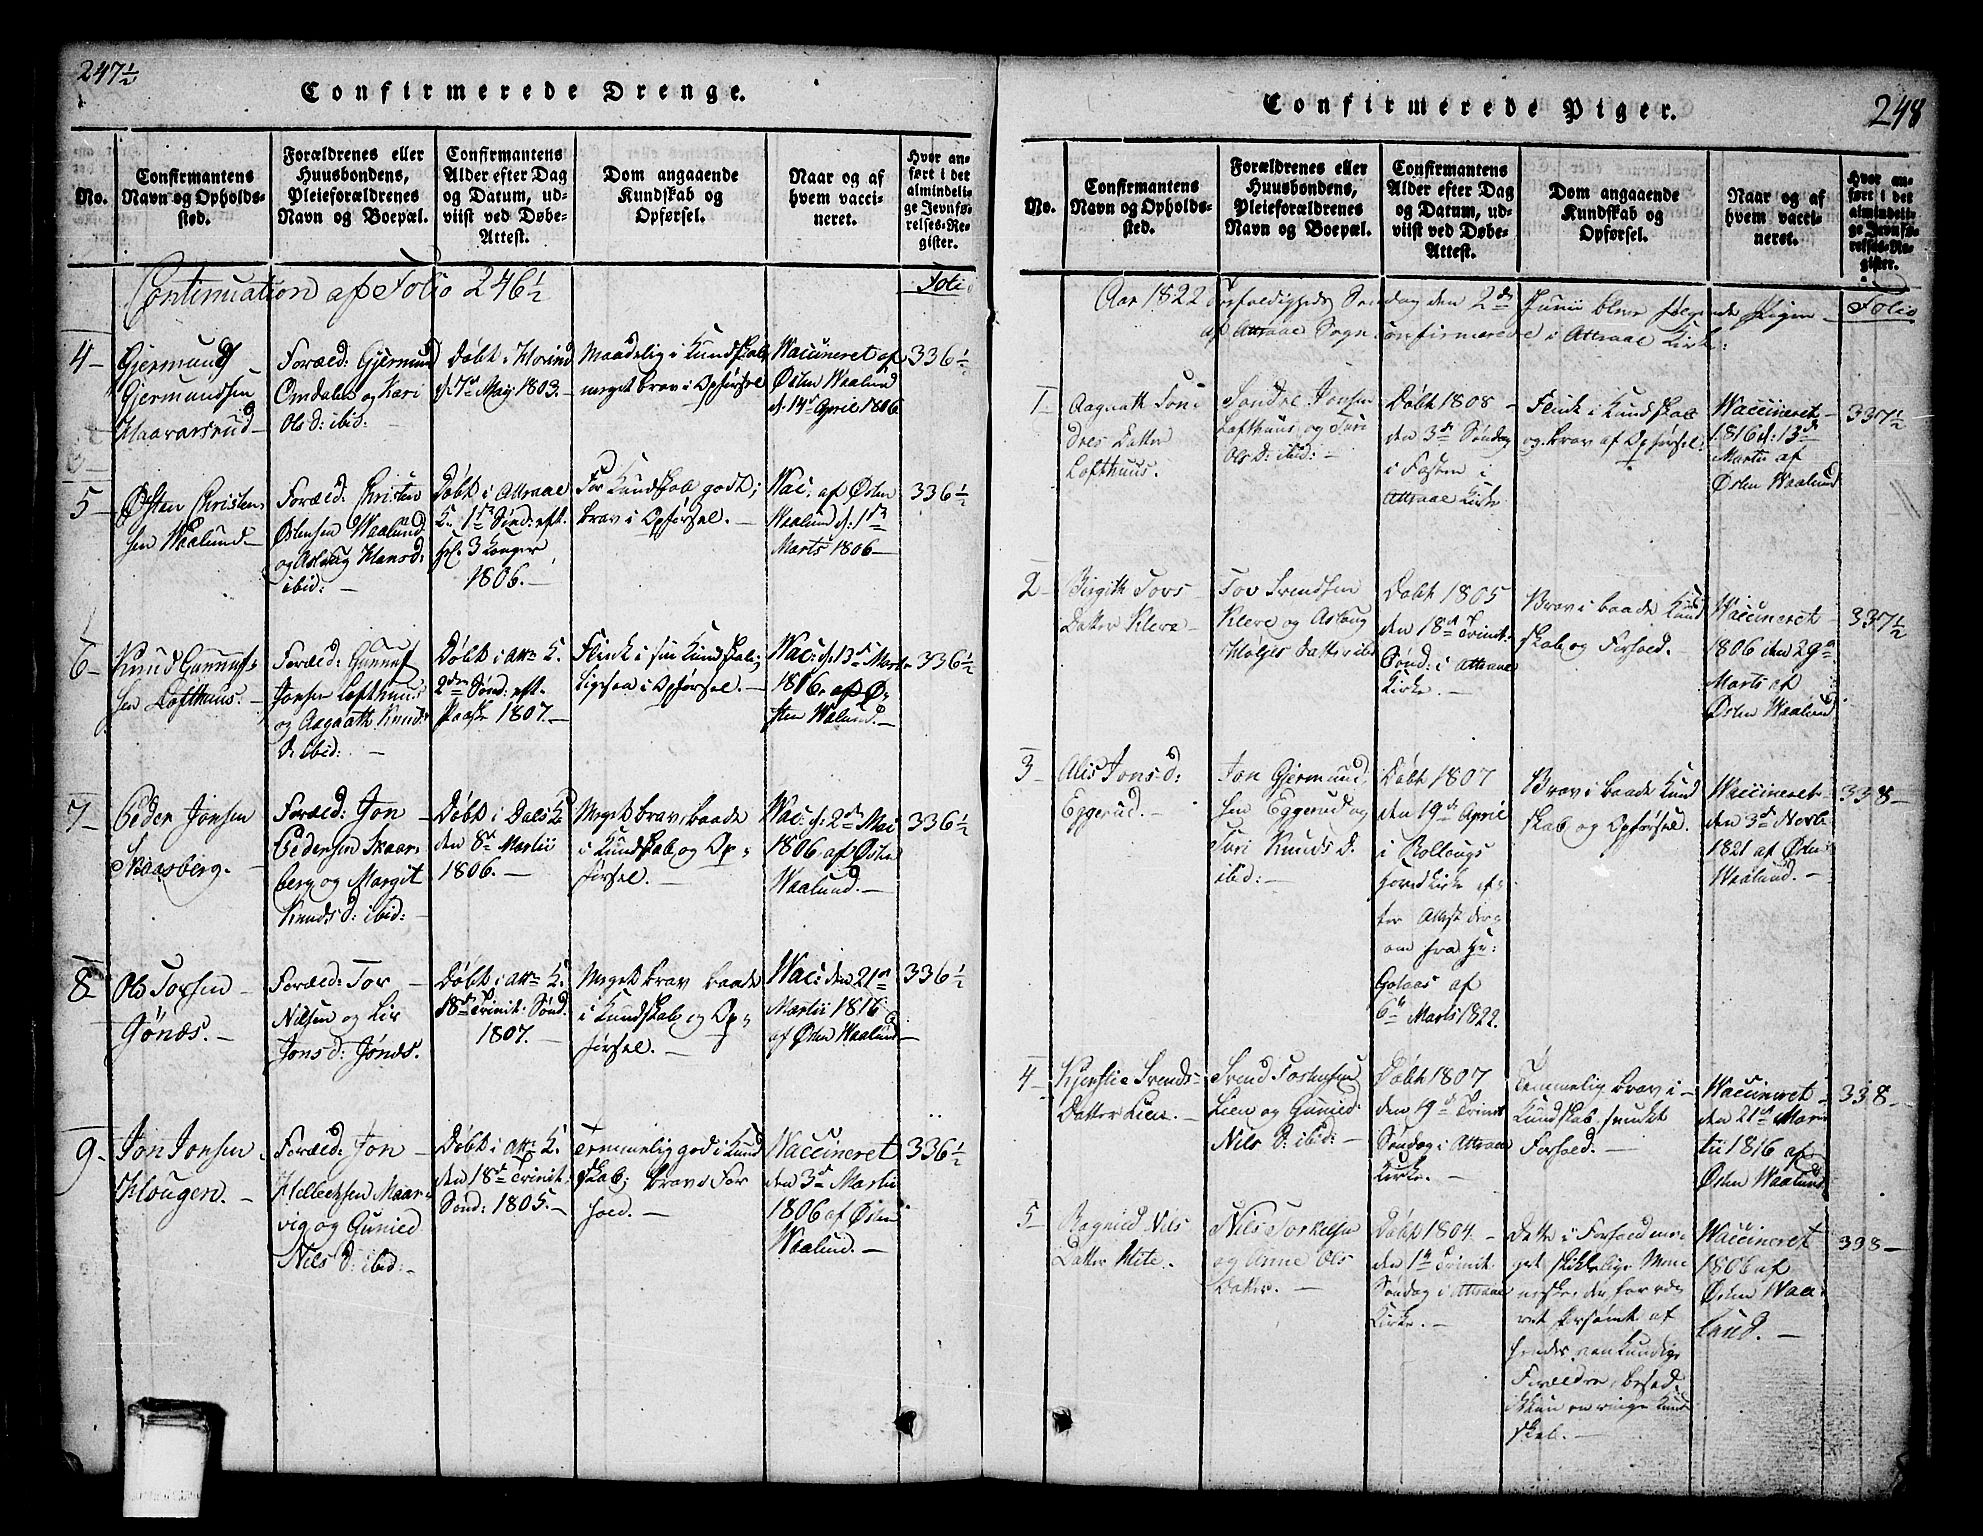 247½
Confirmerede Drenge.
No.
Confirmantens
Navn og Opholds-
sted.
Forældrenes eller
Huusbondens,
Pleieforældrenes
Navn og Boepæl.
Confirmantens
Alder efter Dag
og Datum, ud-
viist ved Døbe-
Attest.
Dom angaaende
Kundskab og
Opførsel.
Naar og af
hvem vacci-
neret.
Hvor an-
ført i det
almindeli-
ge Jevnfø-
relses-Re-
gister.
Continuation af Folio 246½
Folio
4
Gjermund
Gjermundsen
Haavarsrud
Foræld: Gjermund
Omdalen og Kari
Ols D: ibid: -
Døbt i Hovind
d. 7de May 1803. -
Maadelig i Kundskab
meget brav i Opførsel
Waccineret af
Østen Waalund
d. 14de April 1806
336½
5
Østen Christen-
sen Waalund -
Foræld: Christen
Østensen Waalund
og Aslaug Hansd:
ibid: -
Døbt i Attraae
K. 1ste Sønd: eft.
hel. 3 Konger
1806. -
For Kundskab godt;
brav i Opførsel. -
Wac: af Østen
Waalund d. 1ste
Marts 1806 -
336½
6
Knud Gunnuf-
sen Lofthuus. -
Foræld: Gunnuf
Jonsen Lofthuus
og Aagaath Knuds
D: ibid: -
Døbt i Attr. K.
2den Sønd: eft.
Paaske 1807. -
Flink i sin Kundskab;
ligesaa i Opførsel. -
Wac: d. 13de Marts
1816. af Ø-
sten Waalund. -
336½
7
Peder Jonsen
Skaarberg. -
Foræld: Jon
Pedersen Skaar-
berg og Margit
Knuds D: ibid:
Døbt i Dals K.
den 8de Martii
1806. -
Meget brav baade
i Kundskab og Op-
førsel. -
Wac: d. 2den Mai
1806 af Østen
Waalund. -
336½
8
Ole Torsen
Gønæs. -
Foræld: Tor
Nilsen og Liv
Jons D: Jønds.
Døbt i Attr. K.
18de Trinit: Sønd.
1807. -
Meget brav baade
i Kundskab og Op-
førsel. -
Wac: den 21de
Martii 1816
af Østen Waalund -
336½
9
Jon Jonsen
Hougen. -
Foræld: Jon
Hellechsen Maar-
vig og Gunied
Nils D: ibid: -
Døbt i Attr. K.
den 18de Trinit:
Sønd: 1805. -
Temmelig god i Kund
skab; brav i For
hold. -
Waccineret
den 3de Martii
1806 af Østen
Waalund. -
336½
248
Confirmerede Piger.
No.
Confirmantens
Navn og Opholds-
sted.
Forældrenes eller
Huusbondens,
Pleieforældrenes
Navn og Boepæl.
Confirmantens
Alder efter Dag
og Datum, ud-
viist ved Døbe-
Attest.
Dom angaaende
Kundskab og
Opførsel.
Naar og af
hvem vacci-
neret.
Hvor an-
ført i det
almindeli-
ge Jevnfø-
relses-Re-
gister.
Aar 1822 Trefoldigheds Søndag den 2den Junii bleve følgende Piger -
af Attraae Sogn confirmerede i Attraae Kirke:
Folio
1
Aagaath Son-
dres Datter
Lofthuus.
Sondre Jonsen
Lofthuus og Turi
Ols D: ibid: -
Døbt 1808 -
den 3die Søndag
i Fasten i
Attraae Kirke
Flink i Kundskab
og brav af Opførsel.
Waccineret
1816 d. 13de
Martii af
Østen Waalund
337½
2
Birgith Tovs
Datter Klere
Tov Svendsen
Klere og Aslaug
Halvers Datter ibid
Døbt 1805
den 18de Trinit:
Sønd: i Attraae
Kirke. -
Brav i baade Kund
skab og Forhold. -
Waccineret
1806 den 29de
Marts af
Østen Waalund
337½
3
Alis Jons D:
Eggerud. -
Jon Gjermund
sen Eggerud og
Turi Knuds D.
ibid: -
Døbt 1807
den 19de April
i Rollougs
Hovedkirke ef-
ter Attest der-
om fra Hr:
Golaas af
6te Marts 1822.
Brav i baade Kund
skab og Opførsel.
Waccineret
den 3de Novb:
1821 af Østen
Waalund. -
338 -
4
Kjerstie Svends-
Datter Lien. -
Svend Tostensen
Lien og Gunied
Nils D: ibid: -
Døbt 1807
den 19de Trinit
Søndag i Attraae
Kirke. -
Temmelig brav i -
Kundskab, smukt
Forhold. -
Waccineret -
den 21de Mar-
tii 1816 af
Østen Waalund.
338 -
5
Ragnild Nils
Datter Mite.
Nils Torkelsen
og Anne Ols
Datter. -
Døbt 1804. -
den 1ste Trinit:
Søndag i Attraae
Kirke. -
Dette i Forhold me-
get skikkelige Men
neske, der har væ-
ret forsømt af
hendes vankundige
Forældre, besad
ikkun en ringe Kund
skab. -
Waccineret
1806 af
Østen Waa-
lund. -
338 -